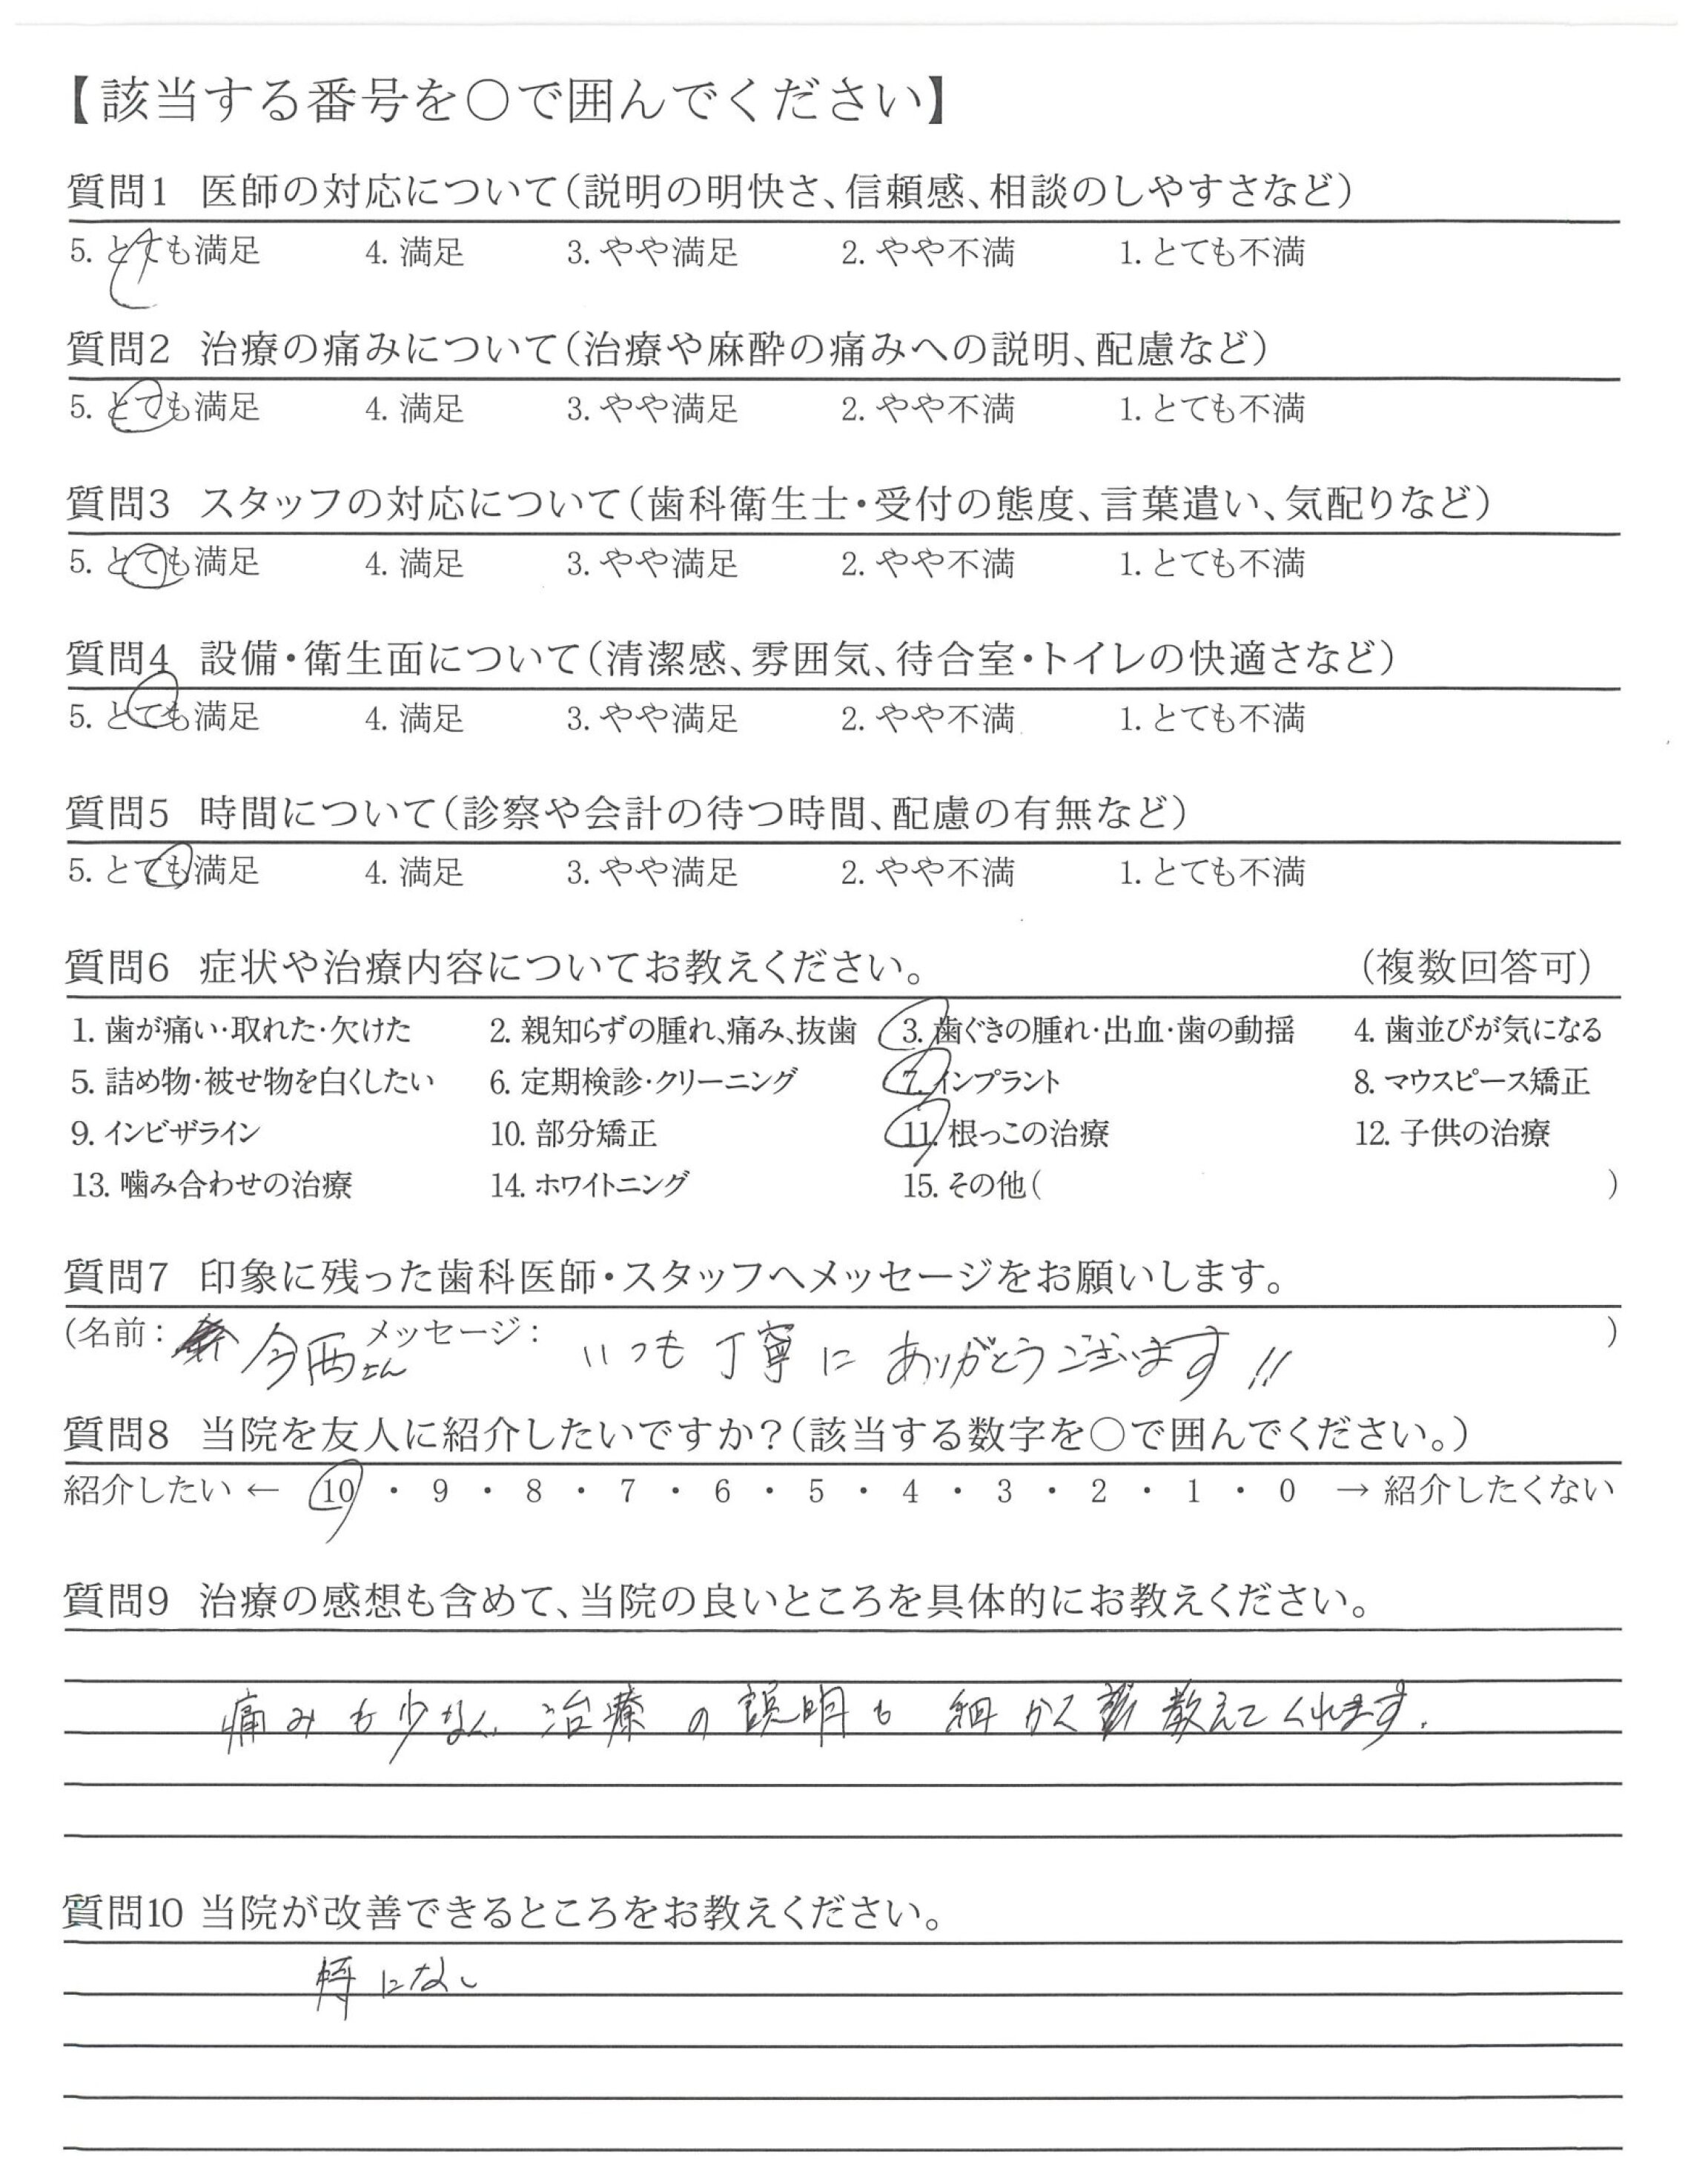 【該当する番号を○で囲んでください】
質問1 医師の対応について(説明の明快さ、信頼感、相談のしやすさなど)
5. とても満足 4. 満足 3. やや満足 2. やや不満 1. とても不満
質問2 治療の痛みについて(治療や麻酔の痛みへの説明、配慮など)
5. とても満足 4. 満足 3. やや満足 2. やや不満 1. とても不満
質問3 スタッフの対応について(歯科衛生士・受付の態度、言葉遣い、気配りなど)
5. とても満足 4. 満足 3. やや満足 2. やや不満 1. とても不満
質問4 設備・衛生面について(清潔感、雰囲気、待合室・トイレの快適さなど)
5. とても満足 4. 満足 3. やや満足 2. やや不満 1. とても不満
質問5 時間について(診察や会計の待つ時間、配慮の有無など)
5. とても満足 4. 満足 3. やや満足 2. やや不満 1. とても不満
質問6 症状や治療内容についてお教えください。 (複数回答可)
1. 歯が痛い・取れた・欠けた 2. 親知らずの腫れ、痛み、抜歯 3. 歯ぐきの腫れ・出血・歯の動揺 4. 歯並びが気になる
5. 詰め物・被せ物を白くしたい 6. 定期検診・クリーニング 7. インプラント 8. マウスピース矯正
9. インビザライン 10. 部分矯正 11. 根っこの治療 12. 子供の治療
13. 噛み合わせの治療 14. ホワイトニング 15. その他( )
質問7 印象に残った歯科医師・スタッフへメッセージをお願いします。
(名前: 今西さん メッセージ: いつも丁寧にありがとうございます!! )
質問8 当院を友人に紹介したいですか?(該当する数字を○で囲んでください。)
紹介したい ← 10 ・ 9 ・ 8 ・ 7 ・ 6 ・ 5 ・ 4 ・ 3 ・ 2 ・ 1 ・ 0 → 紹介したくない
質問9 治療の感想も含めて、当院の良いところを具体的にお教えください。
痛みも少なく、治療の説明も細かく教えてくれます.
質問10 当院が改善できるところをお教えください。
特になし